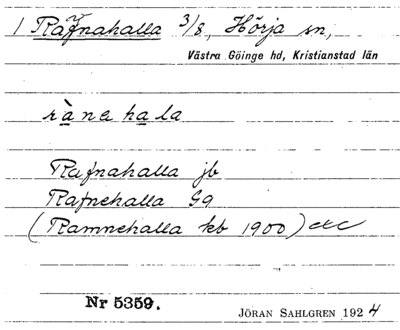 1 Rafnahalla 3/8, Hörja sn,
Västra Göinge hd, Kristianstad län
ràne hala
Rafnahalla jb
Rafnehalla Gg
(Ramnehalla kb 1900) etc
Nr 5359.
JÖRAN SAHLGREN 1924